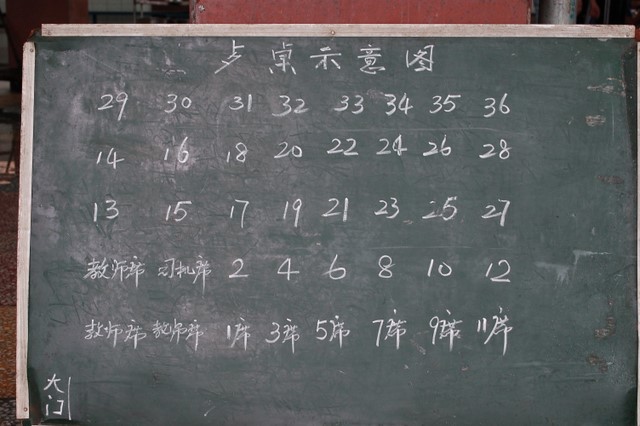 卢桌示意图
29 30 31 32 33 34 35 36
14 16 18 20 22 24 26 28
13 15 17 19 21 23 25 27
教师席 司机席 2 4 6 8 10 12
教师席 教师席 1席 3席 5席 7席 9席 11席
大门